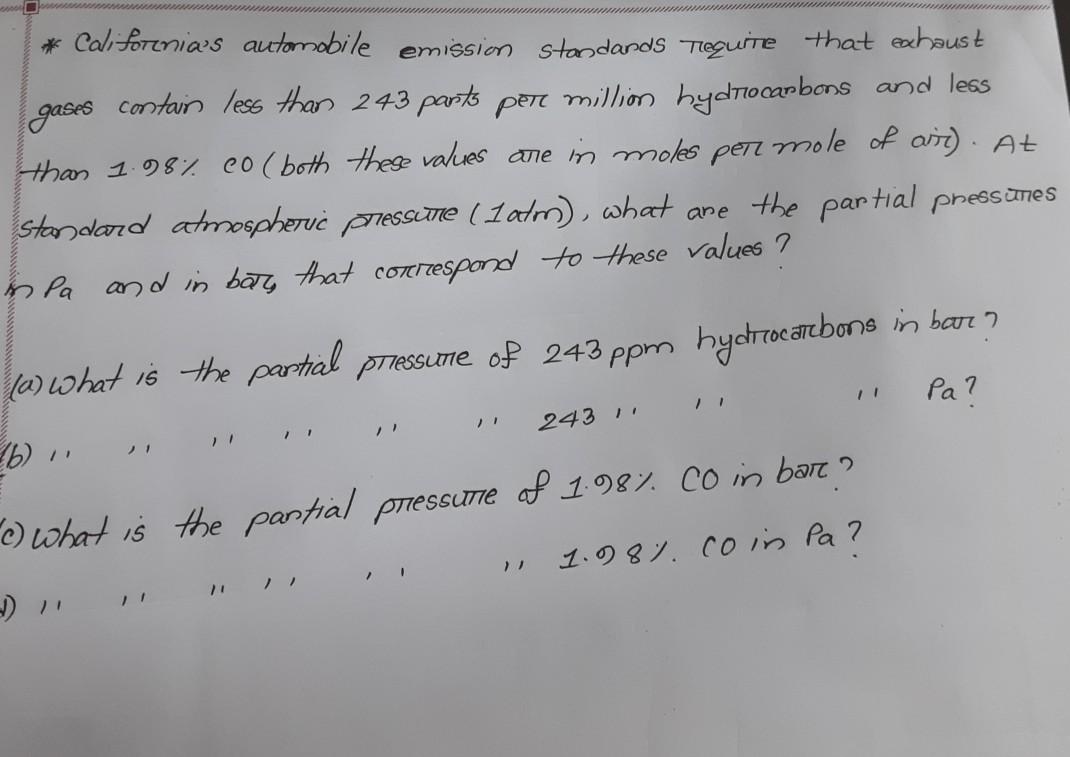 * California's automobile emission standards require that exhaust
gases contain less than 243 parts per million hydrocarbons and less
than 1.98% CO (both these values are in moles per mole of air). At
standard atmospheric pressure (1atm), what are the partial pressures
in Pa and in bar, that correspond to these values?
(a) What is the partial pressure of 243 ppm hydrocarbons in bar?
(b) '' '' '' '' '' '' 243 '' '' '' Pa?
c) What is the partial pressure of 1.98% CO in bar?
d) '' '' '' '' '' '' 1.98%. CO in Pa?